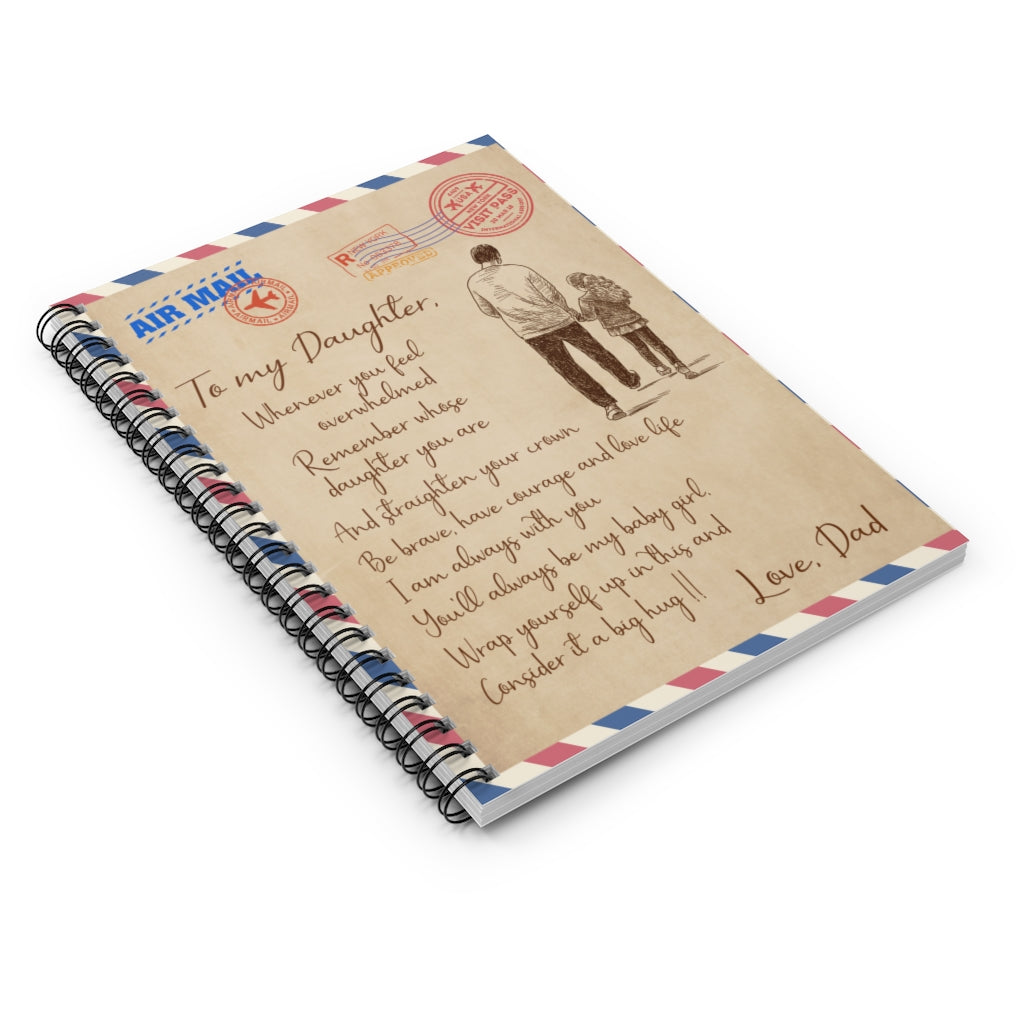 AIR MAIL
AIRMAIL • AIRMAIL
R NEW YORK
APPROVED
USA
NEW YORK
VISIT PASS
INTERNATIONAL AIRPORT
To my Daughter,
Whenever you feel
overwhelmed
Remember whose
daughter you are
And straighten your crown
Be brave, have courage and love life
I am always with you
You'll always be my baby girl.
Wrap yourself up in this and
Consider it a big hug!!
Love, Dad